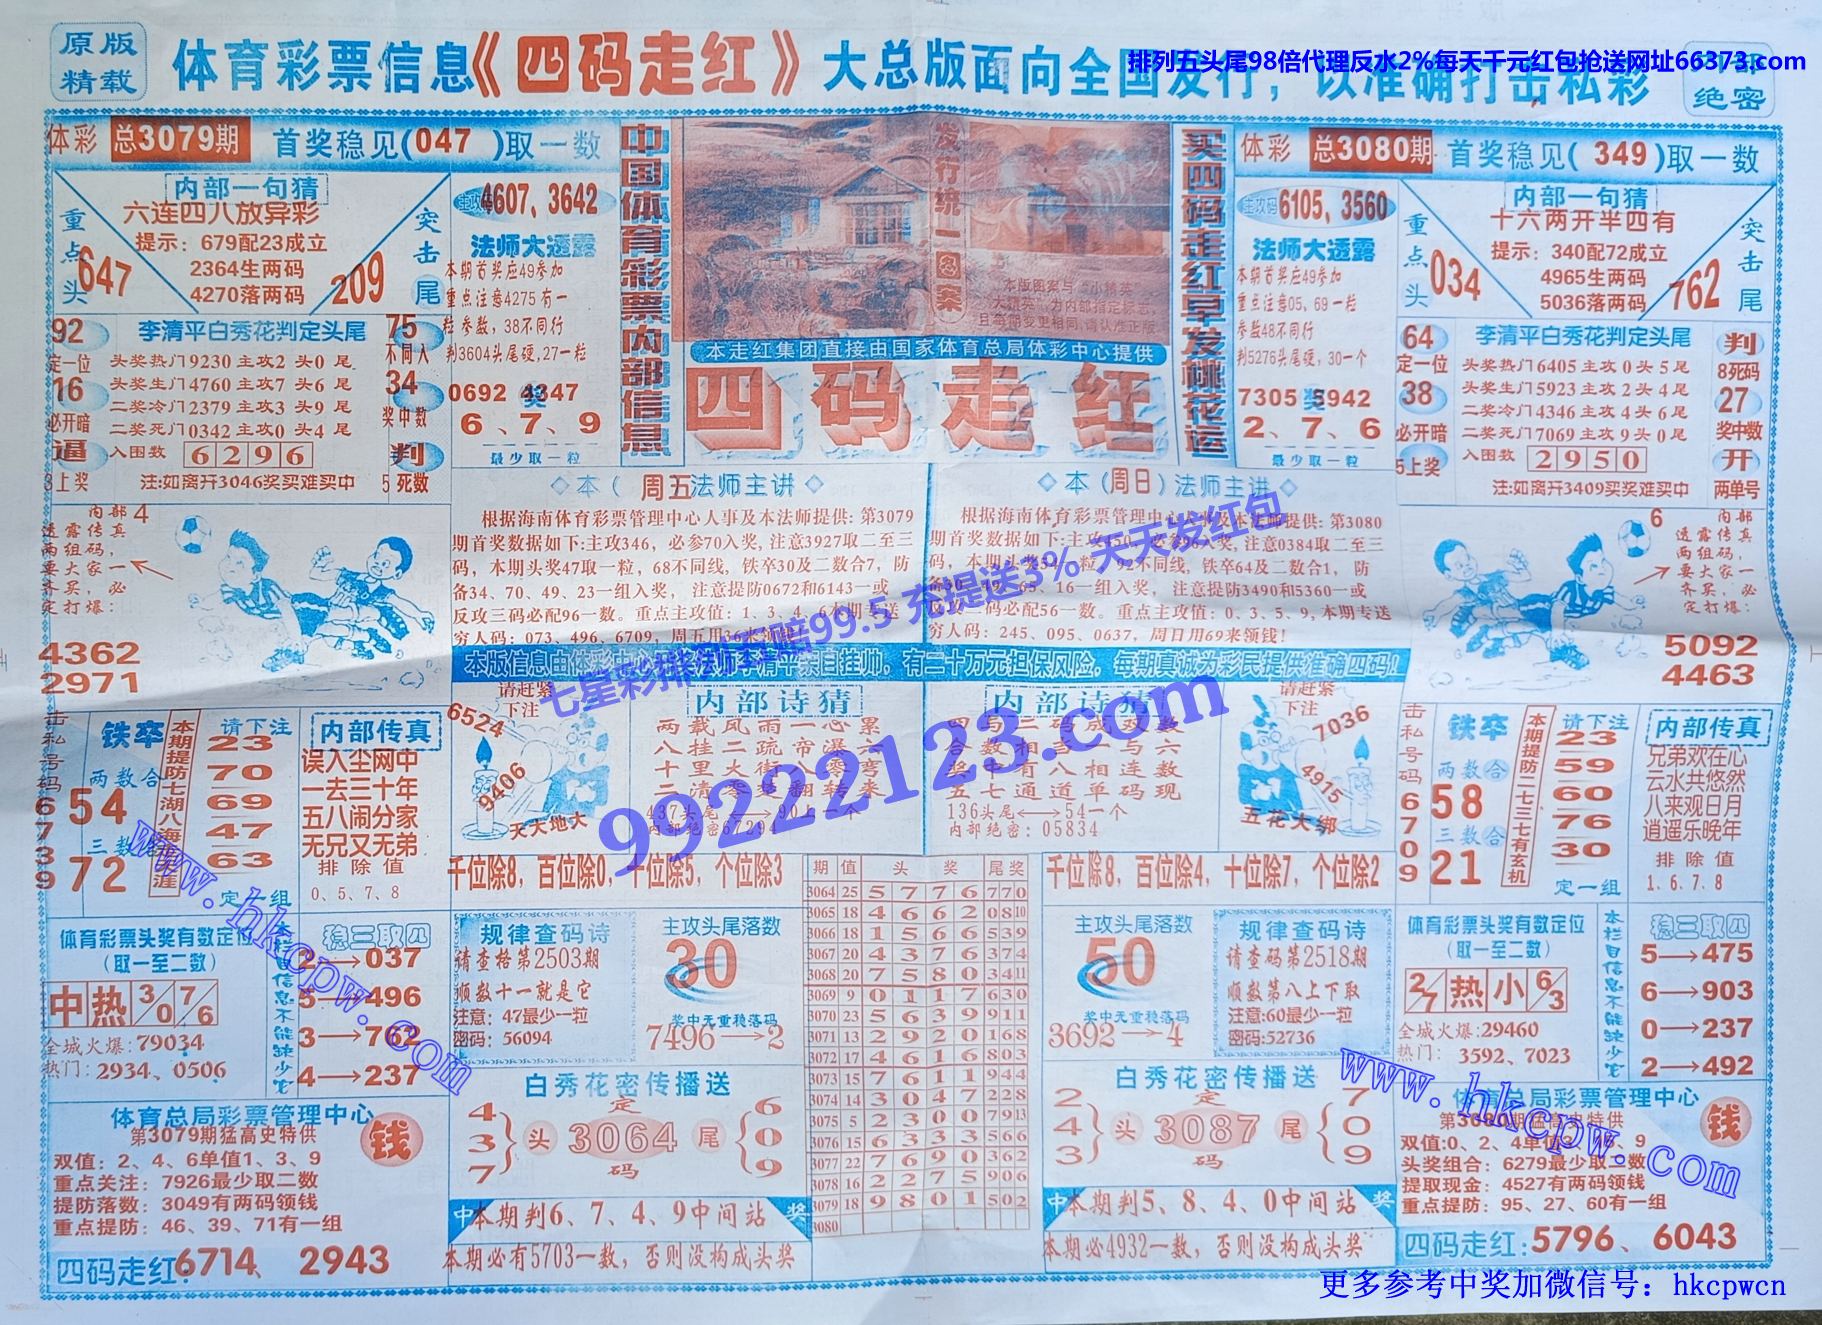 原版
精载
体育彩票信息《四码走红》大总版面向全国发行，以准确打击私彩
绝密
排列五头尾98倍代理反水2%每天千元红包抢送网址66373.com
体彩 总3079期 首奖稳见(047)取一数
内部一句猜
六连四八放异彩
提示：679配23成立
2364生两码
4270落两码
重点头
647
突击尾
209
主攻码 4607、3642
法师大透露
本期首奖应49参加
重点注意4275有一
粒参数，38不同行
判3604头尾硬，27一粒
0692 奖 4347
6、7、9
最少取一粒
92
定一位
16
必开暗
逼
3上奖
李清平白秀花判定头尾
头奖热门9230主攻2 头0 尾
头奖生门4760主攻7 头6 尾
二奖冷门2379主攻3 头9 尾
二奖死门0342主攻0 头4 尾
入围数 6 2 9 6
注:如离开3046奖买难买中
75
不同人
34
奖中数
判
5死数
中国体育彩票内部信息
发行统一图案
本版图案与“小精英”
“大精英”为内部指定标志，
且每期变更相同，请认准正版
本走红集团直接由国家体育总局体彩中心提供
四码走红
买四码走红早发桃花运
体彩 总3080期 首奖稳见(349)取一数
主攻码 6105、3560
法师大透露
本期首奖应49参加
重点注意05、69一粒
参数48不同行
判5276头尾硬，30一个
7305 奖 5942
2、7、6
最少取一粒
内部一句猜
十六两开半四有
提示：340配72成立
4965生两码
5036落两码
重点头
034
突击尾
762
64
定一位
38
必开暗
5上奖
李清平白秀花判定头尾
头奖热门6405主攻0头5尾
头奖生门5923主攻2头4尾
二奖冷门4346主攻4头6尾
二奖死门7069主攻9头0尾
入图数 2 9 5 0
注:如离开3409买奖难买中
判
8死码
27
奖中数
开
两单号
内部 4
透露传真
两组码，
要大家一
齐买，必
定打爆：
4362
2971
◇本（周五法师主讲◇
根据海南体育彩票管理中心人事及本法师提供: 第3079
期首奖数据如下:主攻346，必参70入奖, 注意3927取二至三
码，本期头奖47取一粒，68不同线, 铁卒30及二数合7，防
备34、70、49、23一组入奖， 注意提防0672和6143一或
反攻三码必配96一数。重点主攻值：1、3、4、6本期专送
穷人码：073、496、6709，周五用36来领钱
◇本（周日）法师主讲◇
根据海南体育彩票管理中心人事及本法师提供: 第3080
期首奖数据如下:主攻450，必参96入奖, 注意0384取二至三
码，本期头奖54一粒，92不同线, 铁卒64及二数合1， 防
16一组入奖， 注意提防3490和5360一或
码必配56一数。重点主攻值：0、3、5、9, 本期专送
穷人码：245、095、0637，周日用69来领钱！
6 内部
透露传真
两组码，
要大家一
齐买，必
定打爆：
5092
4463
本版信息由体彩中心法师李清平亲自挂帅，有二十万元担保风险，每期真诚为彩民提供准确四码！
七星彩排列五赔99.5 充提送3% 天天发红包
99222123.com
击私号码6739
铁卒
两数合
54
三数合
72
本期提防七湖八海走天涯
请下注
23
70
69
47
63
定一组
内部传真
误入尘网中
一去三十年
五八闹分家
无兄又无弟
排除值
0、5、7、8
请赶紧
下注
6524
9406
天大地大
内部诗猜
两载风雨一心累
八桂二疏帝瀑六
十里大街八零弯
437头尾 90上一个
内部绝密67294
内部诗猜
奖中有八相连数
五七通道单码现
136头尾←→54一个
内部绝密：05834
请赶紧
下注
7036
4915
五花大绑
击私号码6709
铁卒
两数合
58
三数合
21
本期提防二七三七有玄机
请下注
23
59
60
76
30
定一组
内部传真
兄弟欢在心
云水共悠然
八来观日月
逍遥乐晚年
排除值
1、6、7、8
千位除8，百位除0，十位除5，个位除3
千位除8，百位除4，十位除7，个位除2
期 值 头 奖 尾奖
3064 25 5 7 7 6 770
3065 18 4 6 6 2 0810
3066 18 1 5 6 6 539
3067 20 4 3 7 6 374
3068 20 7 5 8 0 3411
3069 9 0 1 1 7 630
3070 23 5 6 3 9 911
3071 13 2 9 2 0 168
3072 17 4 6 1 6 803
3073 15 7 6 1 1 944
3074 14 3 0 4 7 228
3075 5 2 3 0 0 7913
3076 15 6 3 3 3 566
3077 22 7 6 9 0 362
3078 16 2 2 7 5 906
3079 18 9 8 0 1 502
3080
体育彩票头奖有数定位
(取一至二数)
中 热 3/0 7/6
全城火爆：79034
热门：2934、0506
本栏目信息不能缺少它
稳三取四
2→037
5→496
3→762
4→237
规律查码诗
请查格第2503期
顺数十一就是它
注意：47最少一粒
密码：56094
主攻头尾落数
30
奖中无重稳落码
7496→2
主攻头尾落数
50
奖中无重稳落码
3692→4
规律查码诗
请查码第2518期
顺数第八上下取
注意:60最少一粒
密码:52736
体育彩票头奖有数定位
(取一至二数)
2/7 热 小 6/3
全城火爆：29460
热门： 3592、7023
本栏目信息不能缺少它
稳三取四
5→475
6→903
0→237
2→492
体育总局彩票管理中心
第3079期猛高史特供
钱
双值：2、4、6单值1、3、9
重点关注：7926最少取二数
提防落数：3049有两码领钱
重点提防：46、39、71有一组
四码走红：6714、2943
白秀花密传播送
4
3
7
头 定 3064 码 尾
6
0
9
中 本期判6、7、4、9中间站 奖
本期必有5703一数，否则没构成头奖
白秀花密传播送
2
4
3
头 定 3087 码 尾
7
0
9
中 本期判5、8、4、0中间站 奖
本期必4932一数，否则没构成头奖
体育总局彩票管理中心
第3080期猛高史特供
钱
双值:0、2、4单值3、5、9
头奖组合：6279最少取二数
提取现金：4527有两码领钱
重点提防：95、27、60有一组
四码走红:5796、6043
www.hkcpw.com
www.hkcpw.com
更多参考中奖加微信号：hkcpwcn